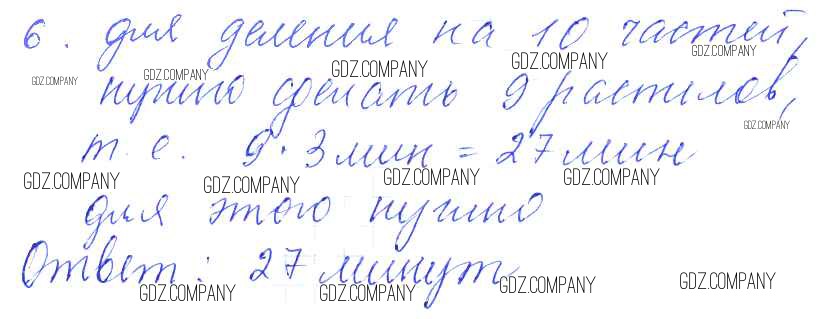 6. для деления на 10 частей,
GDZ.COMPANY GDZ.COMPANY GDZ.COMPANY GDZ.COMPANY GDZ.COMPANY
нужно сделать 9 распилов,
GDZ.COMPANY
т. е. 9 · 3 мин = 27 мин
GDZ.COMPANY GDZ.COMPANY GDZ.COMPANY GDZ.COMPANY
для этого нужно
Ответ: 27 минут
GDZ.COMPANY GDZ.COMPANY GDZ.COMPANY GDZ.COMPANY